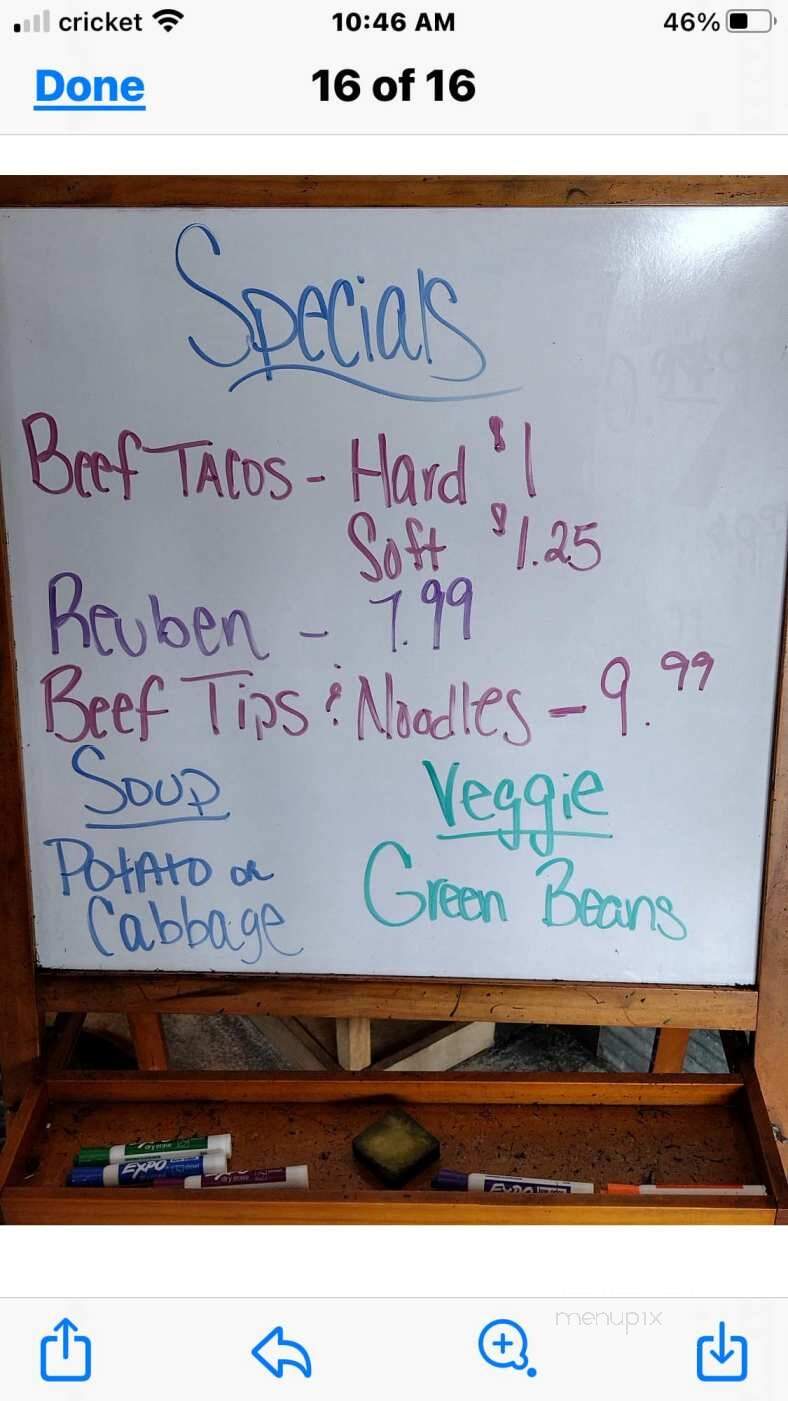 cricket 10:46 AM 46%
Done 16 of 16
Specials
Beef TACOS - Hard $1
Soft $1.25
Reuben - 7.99
Beef Tips & Noodles - 9.99
Soup Veggie
Potato or Green Beans
Cabbage
EXPO
EXPO
menupix